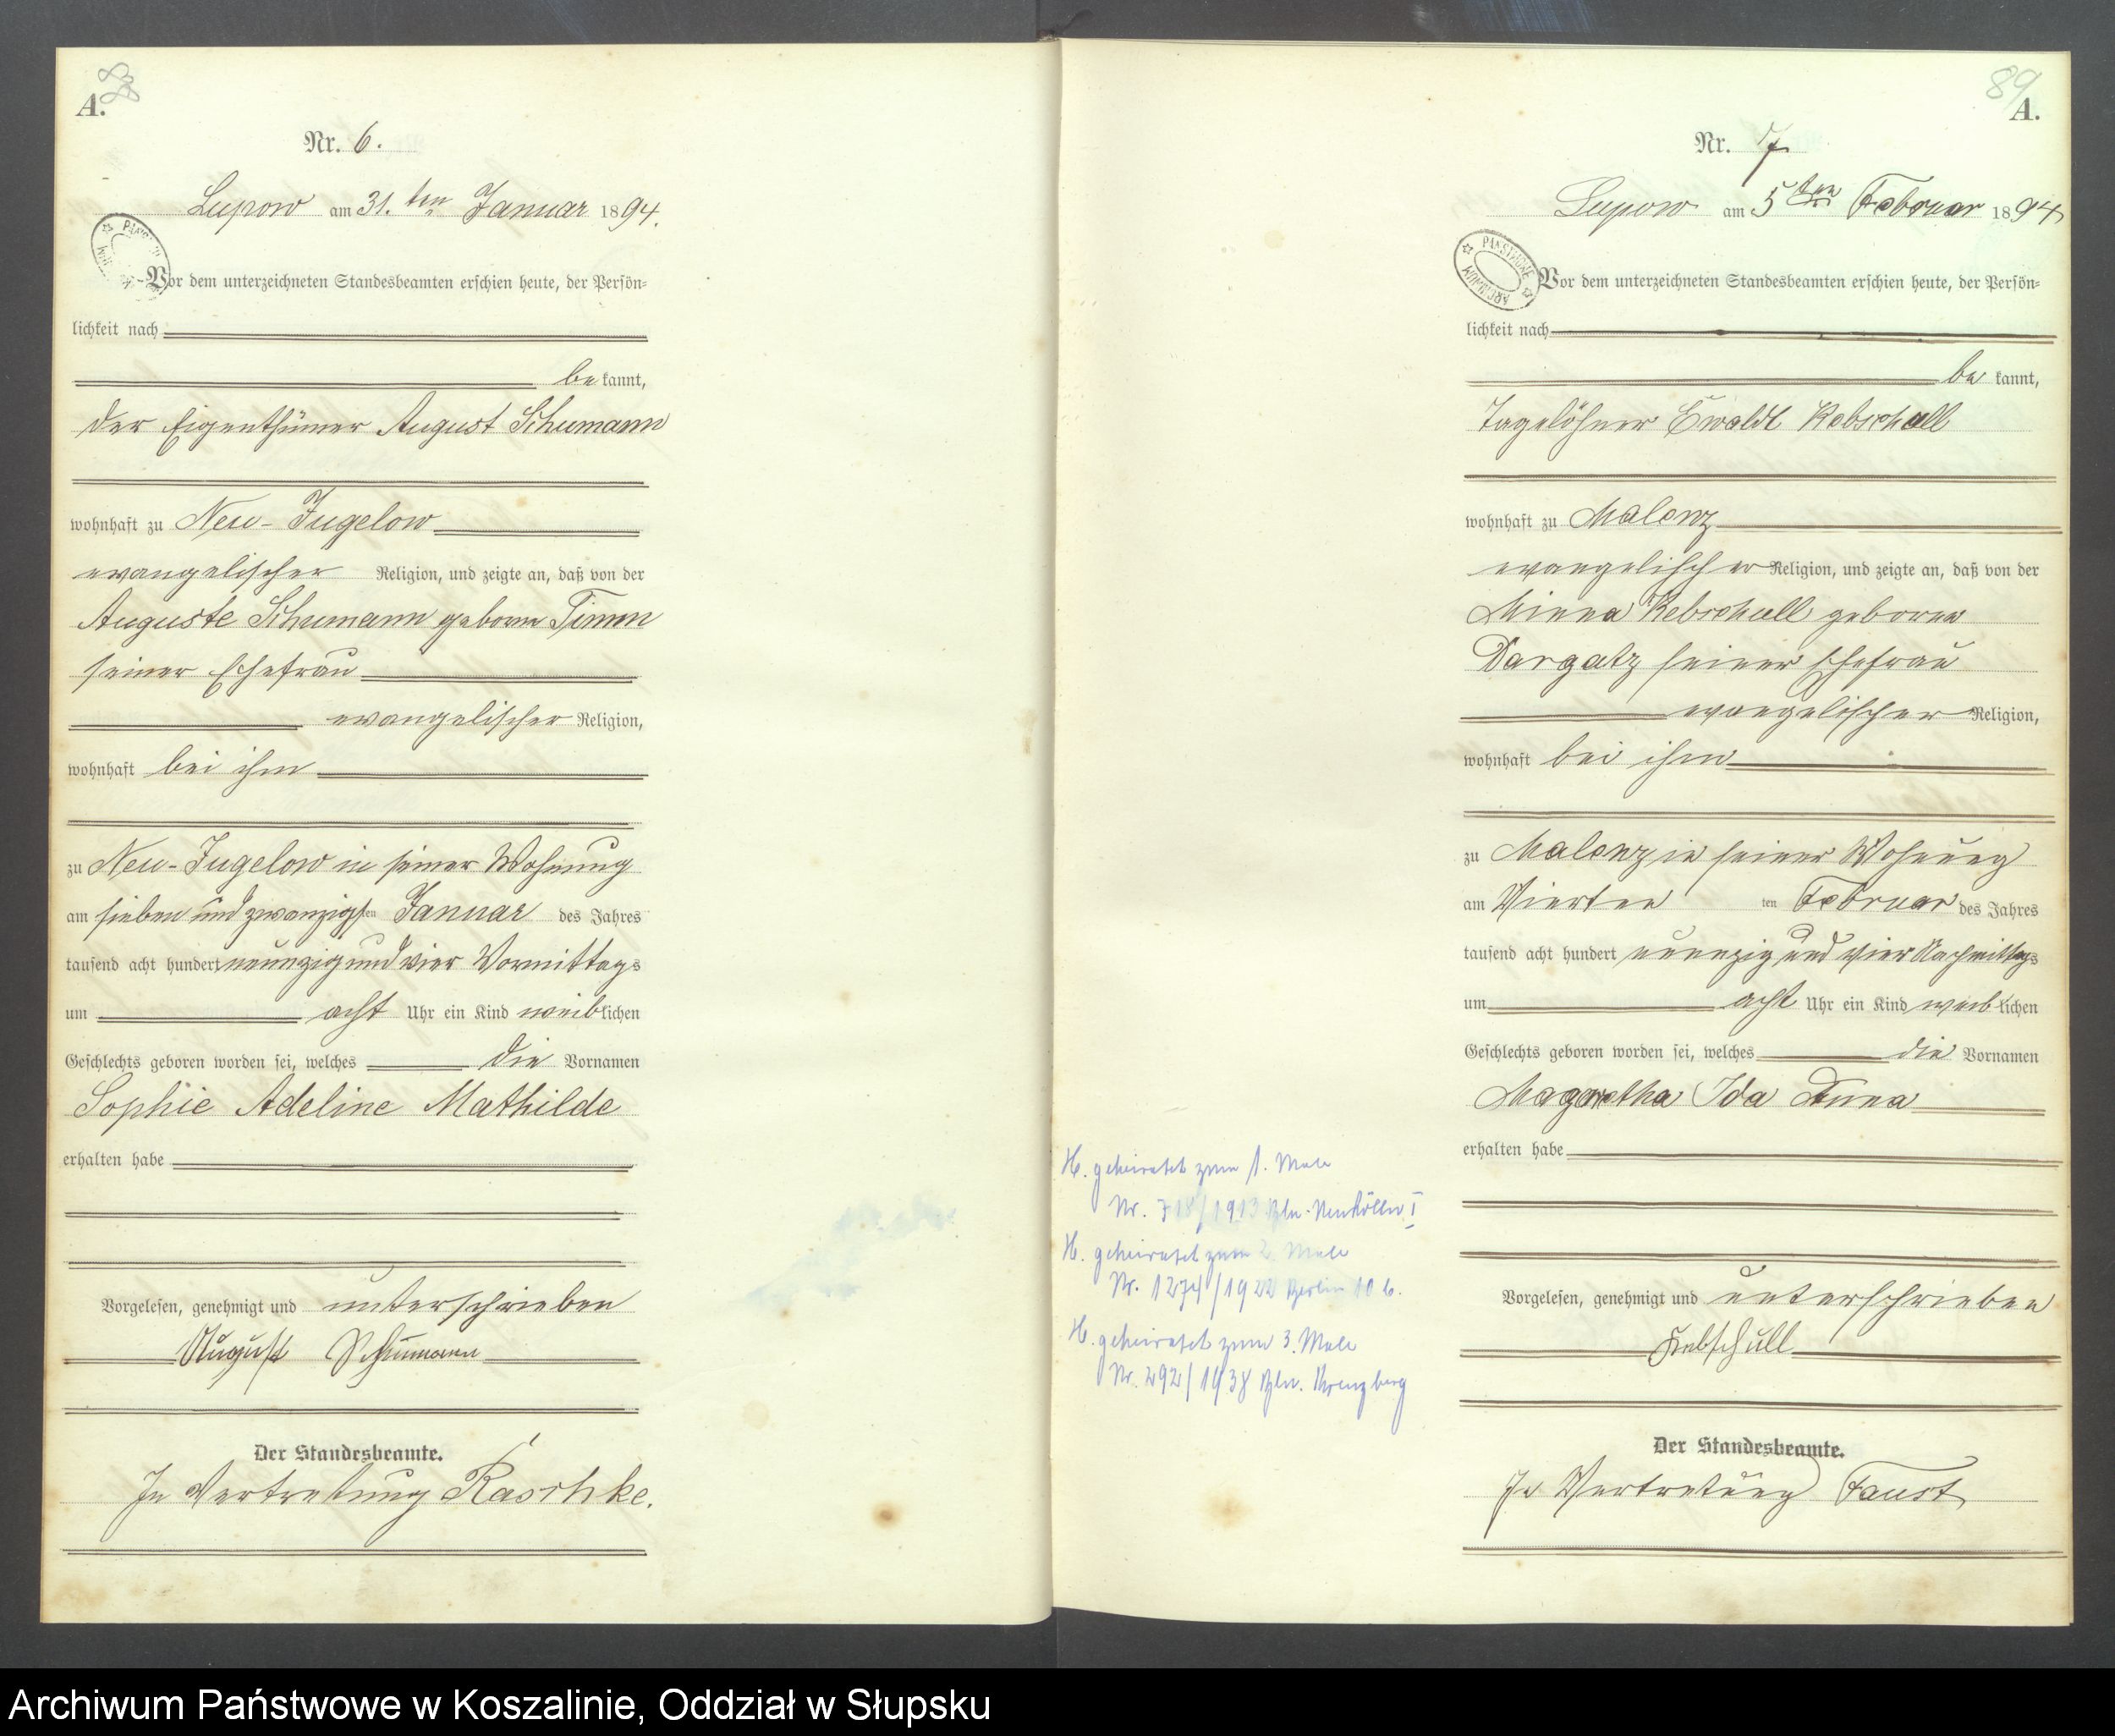 88
A.
Nr. 6.
Lupow am 31. ten Januar 1894.
Vor dem unterzeichneten Standesbeamten erschien heute, der Persön-
lichkeit nach
be kannt,
der Eigenthümer August Schumann
wohnhaft zu Neu-Jugelow
evangelischer Religion, und zeigte an, daß von der
Auguste Schumann geborne Timm
seiner Ehefrau
evangelischer Religion,
wohnhaft bei ihm
zu Neu-Jugelow in seiner Wohnung
am sieben und zwanzigsten Januar des Jahres
tausend acht hundert neunzig und vier Vormittags
um acht Uhr ein Kind weiblichen
Geschlechts geboren worden sei, welches die Vornamen
Sophie Adeline Mathilde
erhalten habe
Vorgelesen, genehmigt und unterschrieben
August Schumann
Der Standesbeamte.
In Vertretung Raschke.
89
A.
Nr. 7
Lupow am 5 ten Februar 1894
PAŃSTWOWE ARCHIWUM
Vor dem unterzeichneten Standesbeamten erschien heute, der Persön-
lichkeit nach
be kannt,
Tagelöhner Ewaldt Kebschull
wohnhaft zu Malenz
evangelischer Religion, und zeigte an, daß von der
Minna Kebschull geborne
Dargatz seiner Ehefrau
evangelischer Religion,
wohnhaft bei ihm
zu Malenz in seiner Wohnung
am Vierten ten Februar des Jahres
tausend acht hundert neunzig und vier Nachmittags
um acht Uhr ein Kind weiblichen
Geschlechts geboren worden sei, welches die Vornamen
Magaretha Ida Anna
erhalten habe
Vorgelesen, genehmigt und unterschrieben
Kebschull
Der Standesbeamte.
In Vertretung Faust
H. geheiratet zum 1. Male
Nr. 718/1913 Bln.-Neukölln I
H. geheiratet zum 2. Male
Nr. 1274/1922 Berlin 10 b.
H. geheiratet zum 3. Male
Nr. 292/1938 Bln. Kreuzberg
Archiwum Państwowe w Koszalinie, Oddział w Słupsku